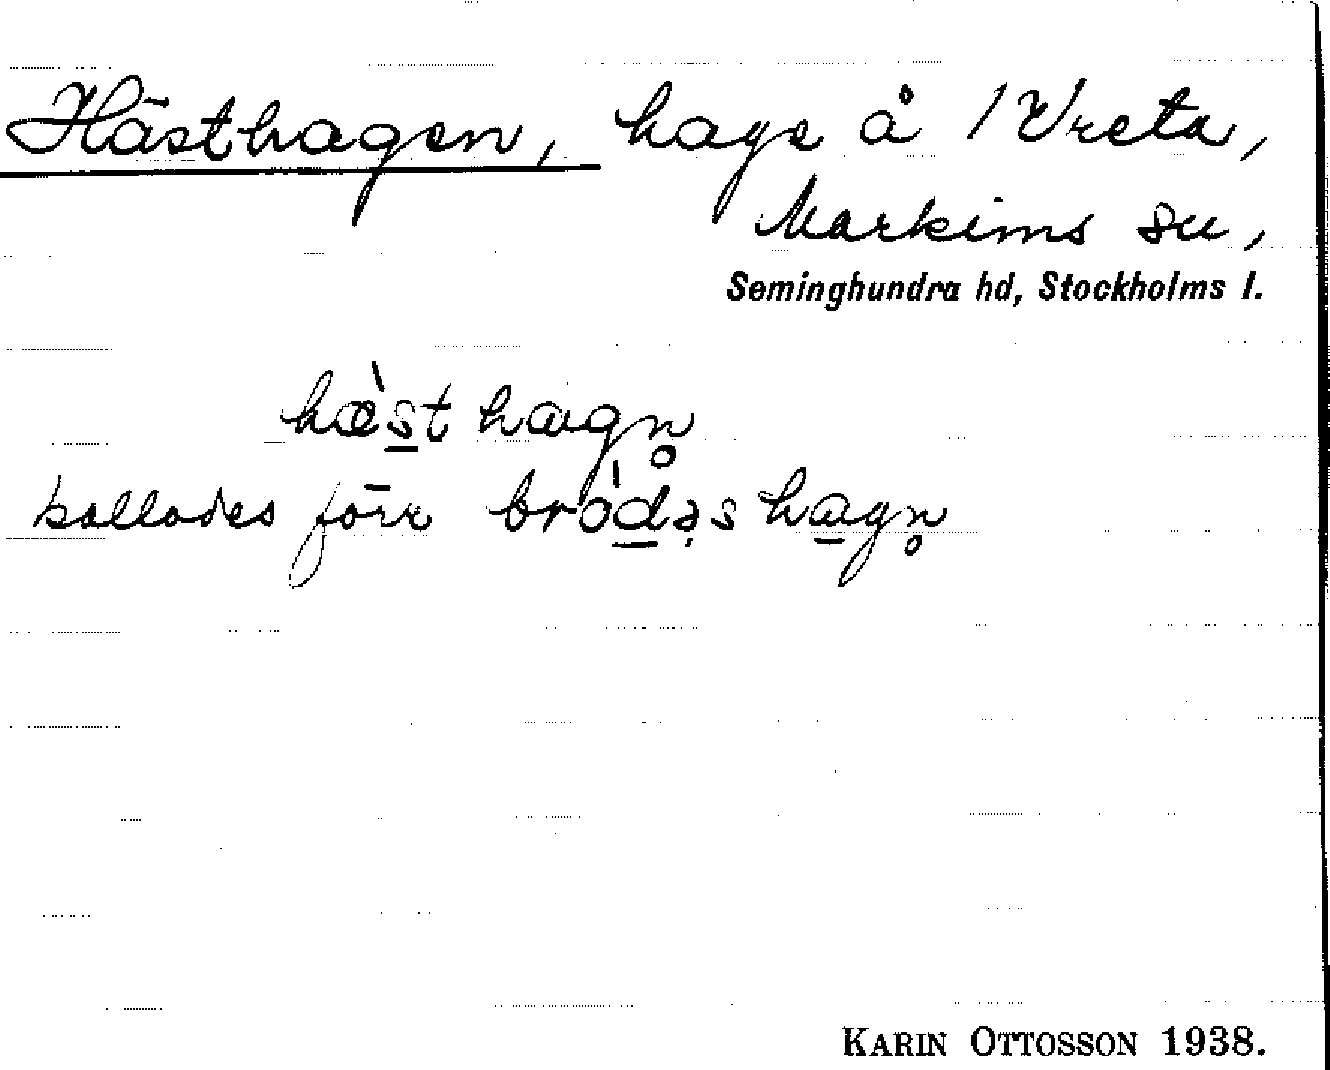 Hästhagen, hage å 1 Vreta,
Markims sn,
Seminghundra hd, Stockholms l.
hæ̀st hagn̥
kallades förr brödəs hagn̥
KARIN OTTOSSON 1938.